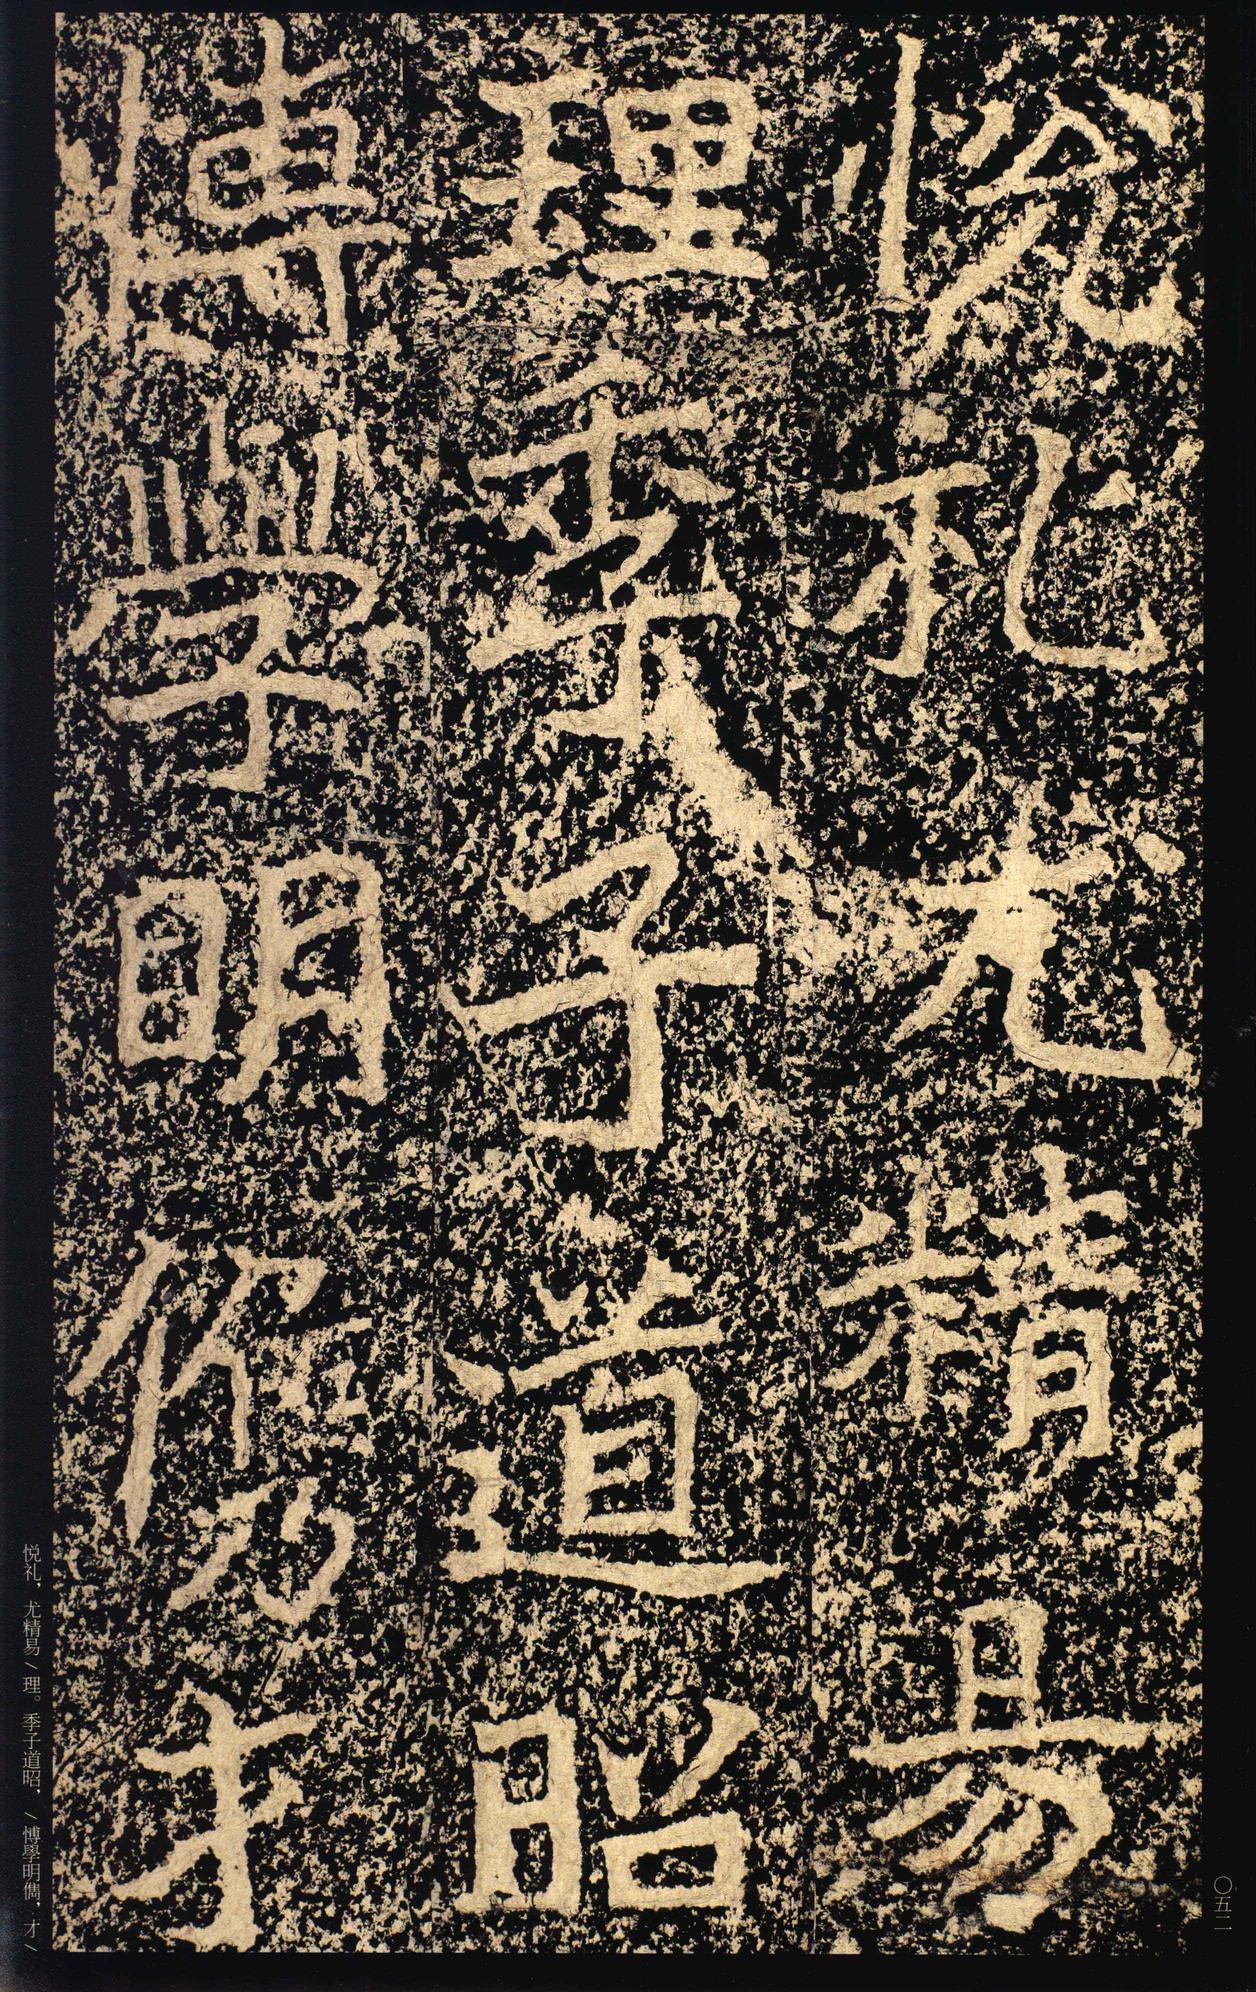 悦礼尤精易
理季子道昭
博學明儁才
悦礼，尤精易／理。季子道昭，／博學明儁，才／
〇五二